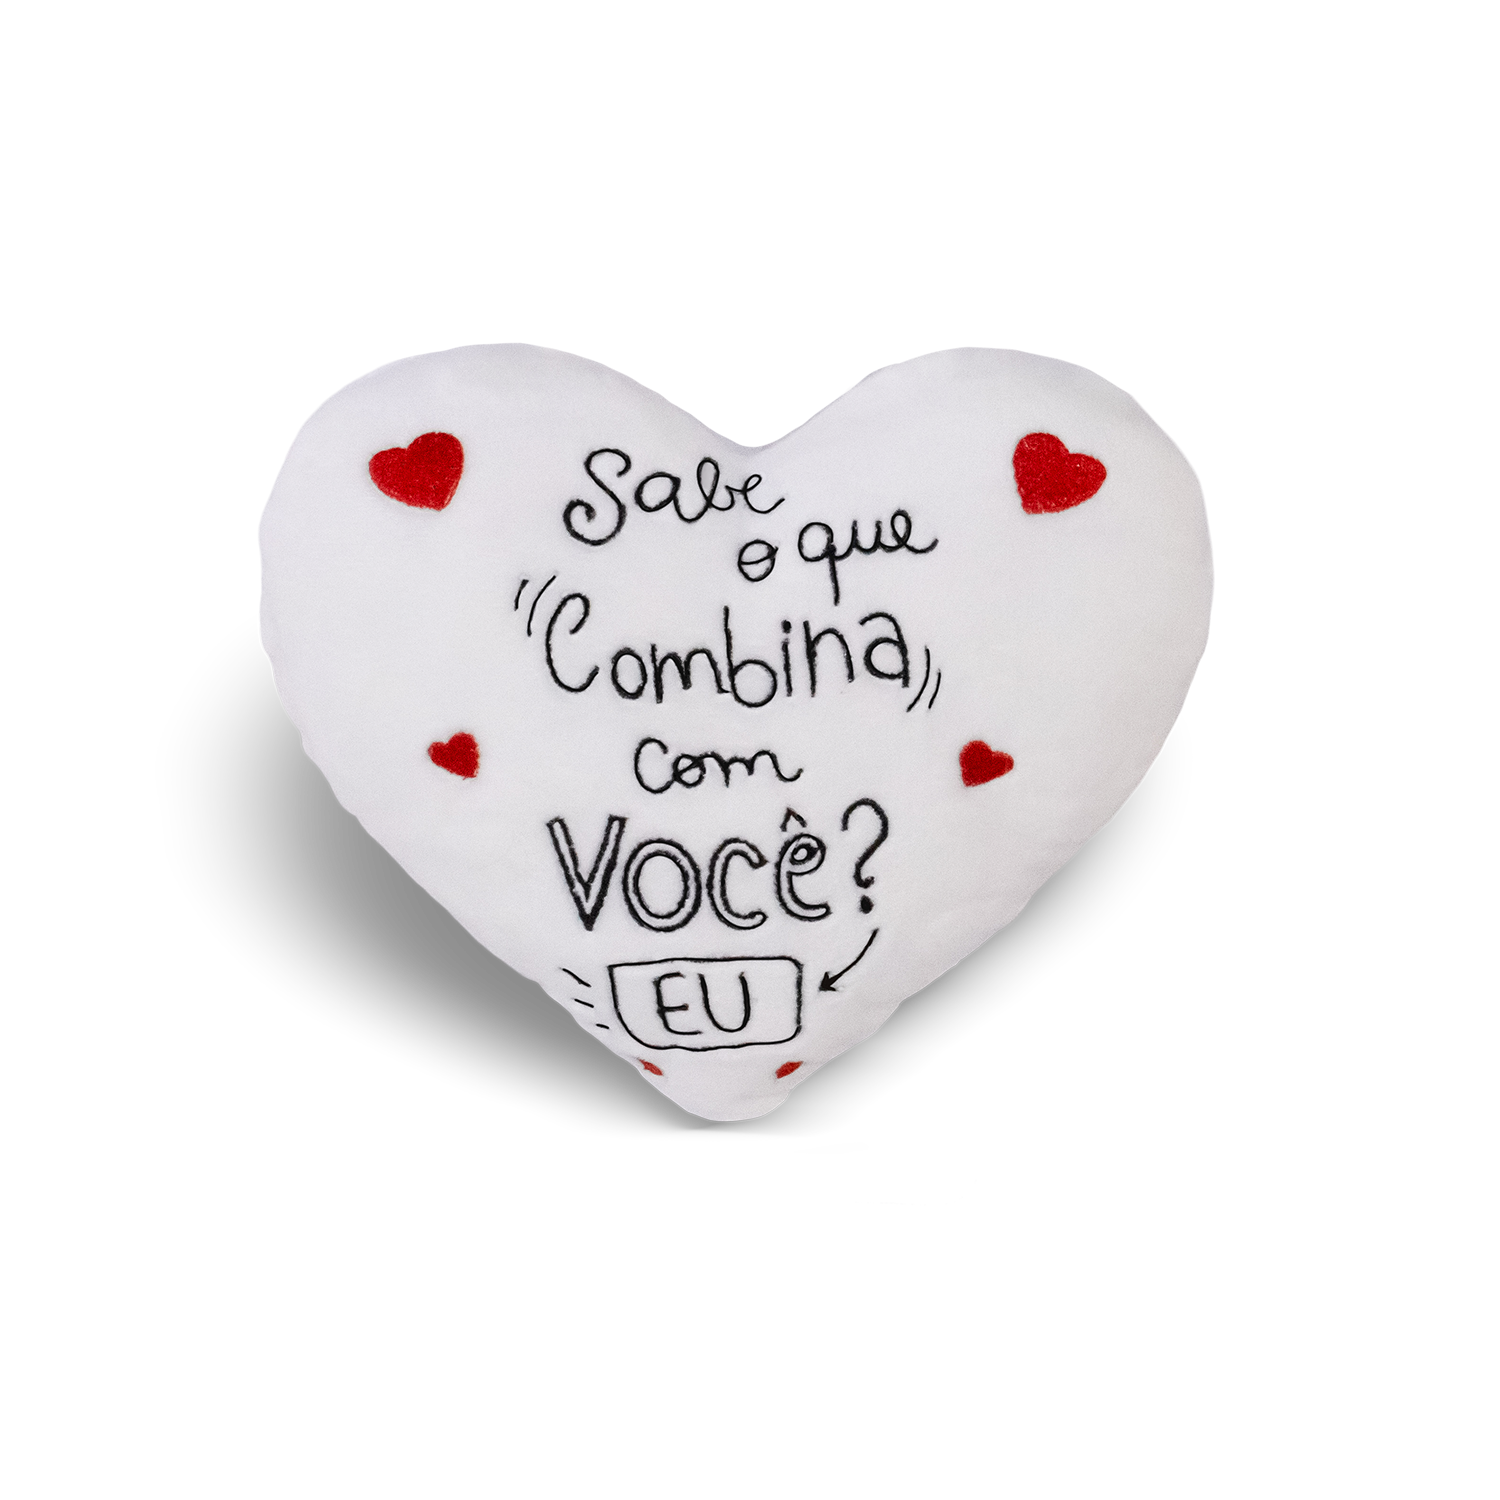 Sabe
o que
Combina
com
Você?
EU